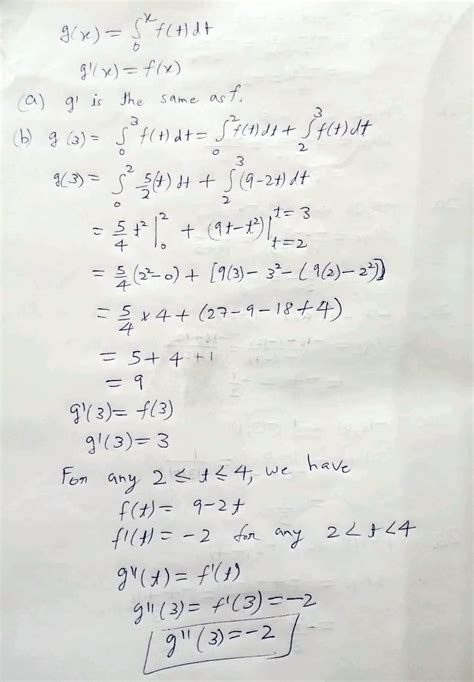 g(x) = ∫₀ˣ f(t) dt
g'(x) = f(x)
(a) g' is the same as f.
(b) g(3) = ∫₀³ f(t) dt = ∫₀² f(t) dt + ∫₂³ f(t) dt
g(3) = ∫₀² 5/2 (t) dt + ∫₂³ (9-2t) dt
= 5/4 t² |₀² + (9t-t²)|ₜ₌₂ᵗ⁼³
= 5/4 (2²-0) + [9(3) - 3² - (9(2) - 2²)]
= 5/4 × 4 + (27-9-18+4)
= 5 + 4 + 1
= 9
g'(3) = f(3)
g'(3) = 3
For any 2 ≤ t ≤ 4, we have
f(t) = 9-2t
f'(t) = -2 for any 2 < t < 4
g''(t) = f'(t)
g''(3) = f'(3) = -2
g''(3) = -2